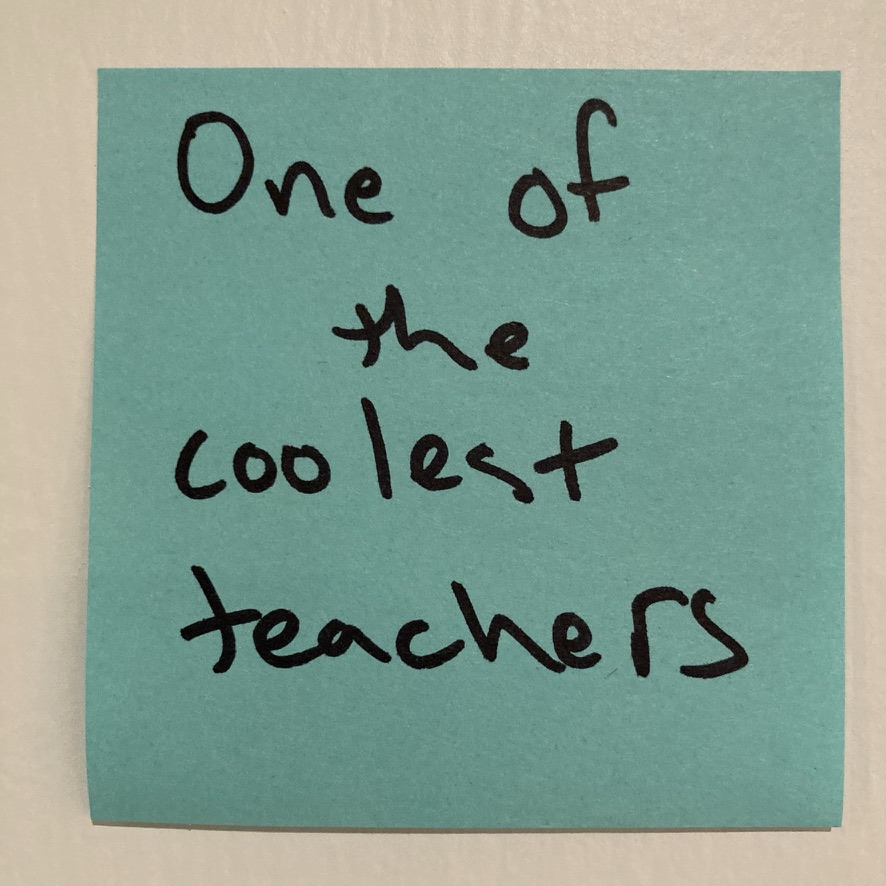 One of
the
coolest
teachers